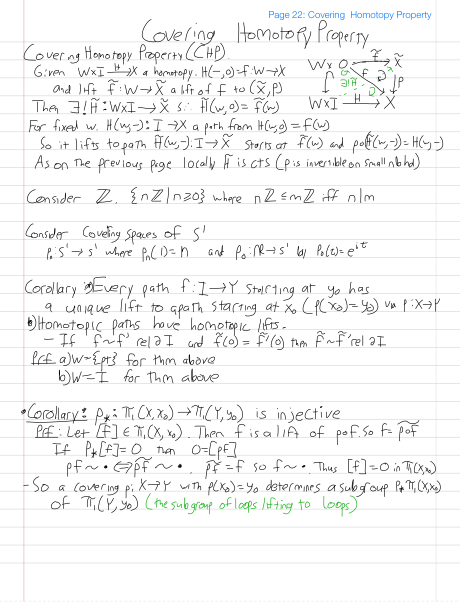 Page 22: Covering Homotopy Property
Covering Homotopy Property
Covering Homotopy Property (CHP).
Given W×I —H→ X a homotopy. H(-,0)=f:W→X
and lift f̃:W→X̃ a lift of f to (X̃,p)
Then ∃! H̃:W×I→X̃ s.t. H̃(w,0)=f̃(w)
W×0 —f̃→ X̃
f
∃!H̃
p
W×I —H→ X
For fixed w. H(w,-): I→X a path from H(w,0)=f(w)
So it lifts to path H̃(w,-):I→X̃ starts at f̃(w) and p∘H̃(w,-)=H(w,-)
As on the previous page locally H̃ is cts (p is invertible on small nbhd)
Consider ℤ. {nℤ | n≥0} where nℤ≤mℤ iff n|m
Consider Covering spaces of S'
pₙ: S'→S' where pₙ(1)=n and p₀:ℝ→S' by p₀(t)=e^{it}
Corollary a) Every path f:I→Y starting at y₀ has
a unique lift to a path starting at x₀ (p(x₀)=y₀) via p:X→Y
b) Homotopic paths have homotopic lifts.
- If f~f' rel ∂I and f̃(0)=f̃'(0) then f̃~f̃' rel ∂I
Prf: a) W={pt} for thm above
b) W=I for thm above
• Corollary: p_*: π₁(X,x₀)→π₁(Y,y₀) is injective
Prf: Let [f]∈π₁(X,x₀). Then f is a lift of p∘f. So f=p̃∘f̃
If p_*[f]=0 then 0=[pf]
pf~• ⇔ p̃f̃~•. p̃f̃=f so f~•. Thus [f]=0 in π₁(X,x₀)
- So a covering p: X→Y with p(x₀)=y₀ determines a subgroup p_*π₁(X,x₀)
of π₁(Y,y₀) (the subgroup of loops lifting to loops)